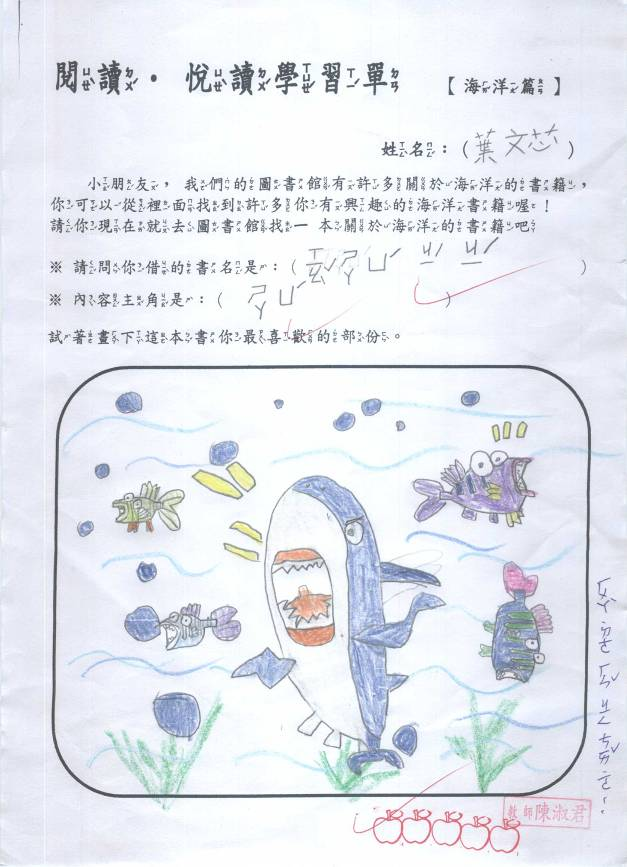 閱讀・悅讀學習單 【海洋篇】
姓名：(葉文芯)
小朋友，我們的圖書館有許多關於海洋的書籍，
你可以從裡面找到許多你有興趣的海洋書籍喔！
請你現在就去圖書館找一本關於海洋的書籍吧
※ 請問你借的書名是：( ㄕㄚ ㄩˊ )
※ 內容主角是：( ㄕㄚ ㄩˊ )
試著畫下這本書你最喜歡的部份。
教師陳淑君